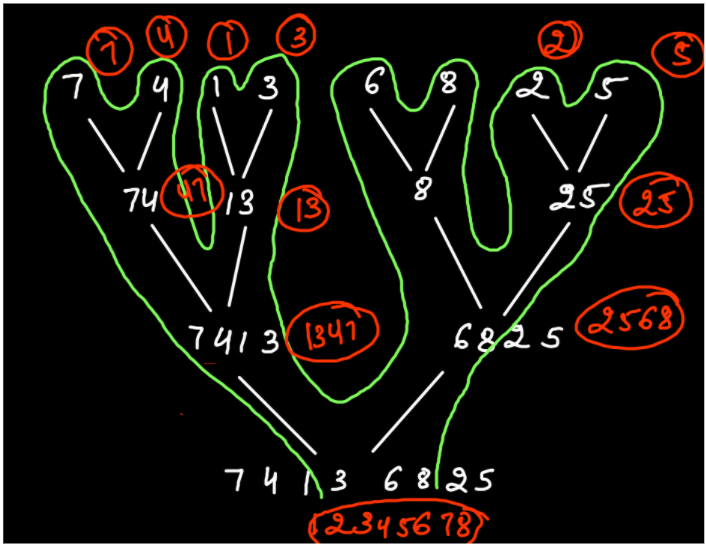 7 4 1 3 2 5
7 4 1 3 6 8 2 5
74 47 13 13 8 25 25
7413 1347 6825 2568
7 4 1 3 6 8 2 5
12345678